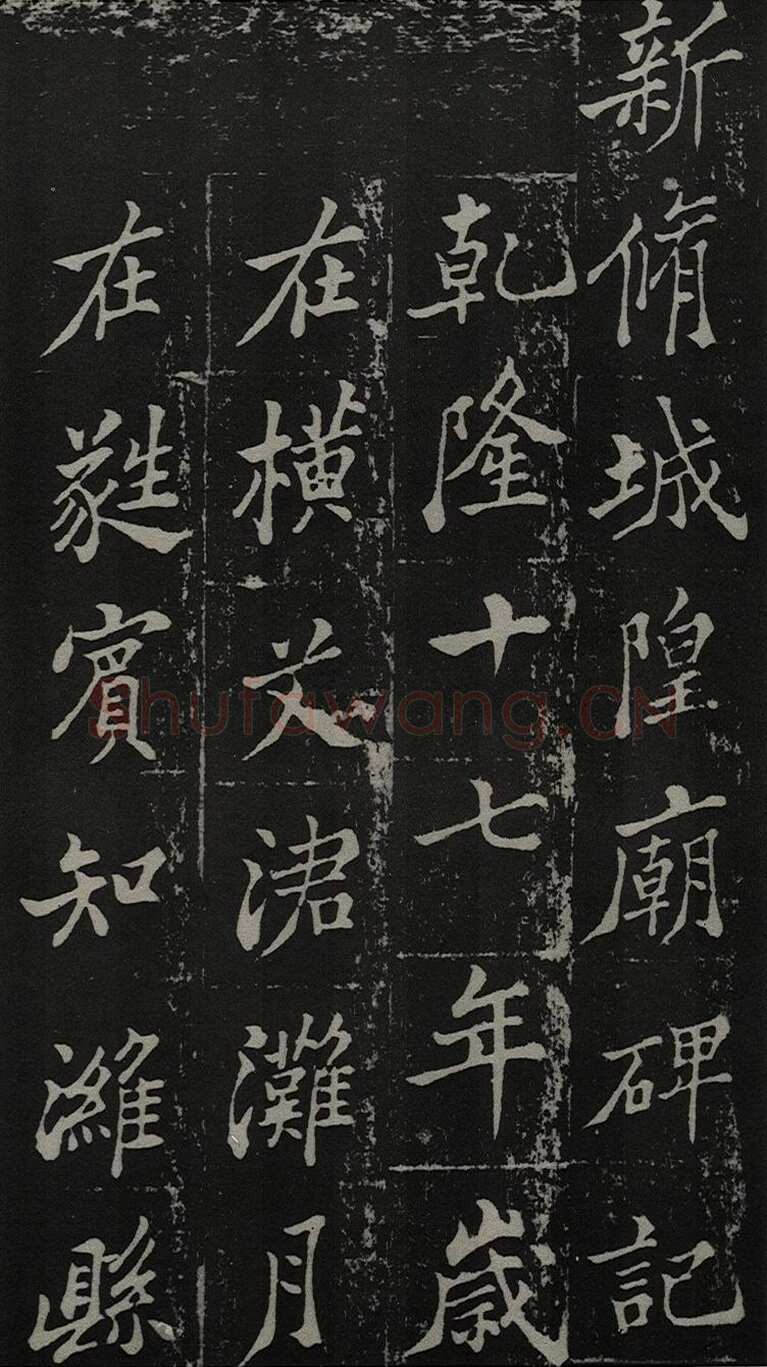 新脩城隍廟碑記
乾隆十七年歲
在橫艾涒灘月
在蕤賓知濰縣
Shufawang.CN